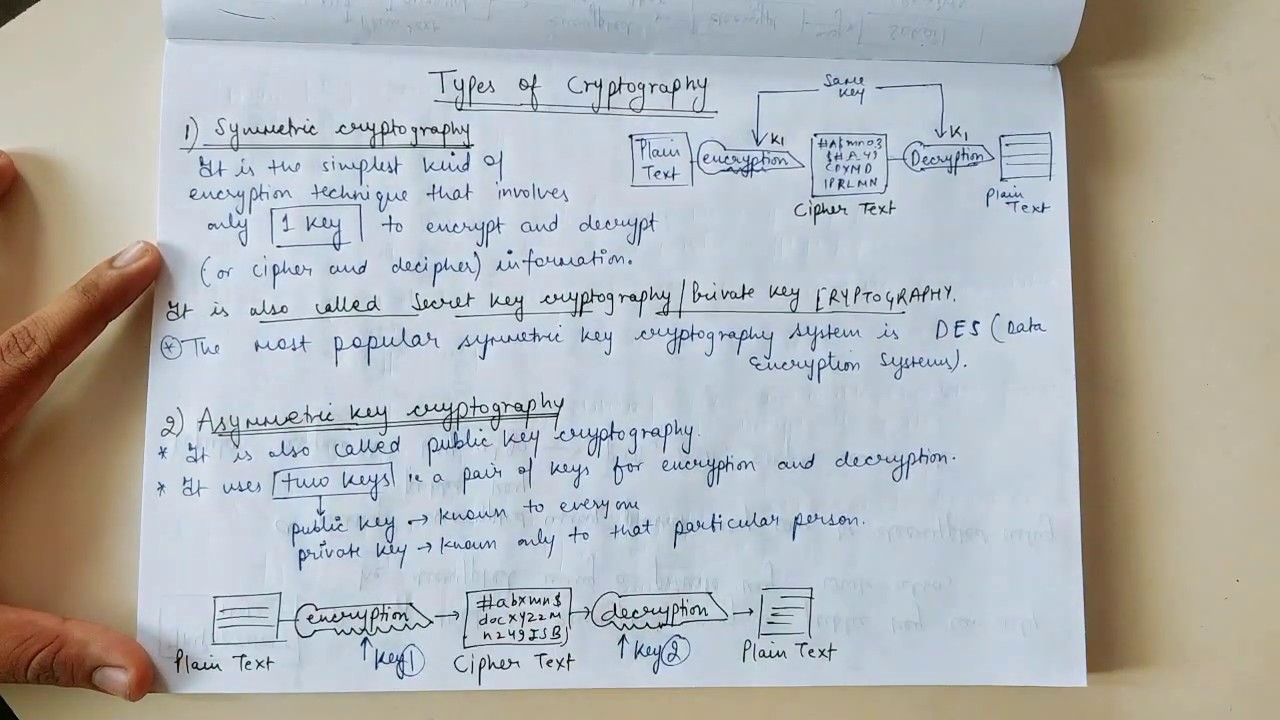 Types of Cryptography
1) Symmetric cryptography
It is the simplest kind of
encryption technique that involves
only 1 key to encrypt and decrypt
(or cipher and decipher) information.
Same
key
K1
K1
Plain
Text
encryption
Decryption
Cipher Text
Plain
Text
It is also called Secret key cryptography/Private key CRYPTOGRAPHY.
* The most popular symmetric key cryptography system is DES (Data
Encryption Systems).
2) Asymmetric key cryptography
* It is also called public key cryptography.
* It uses two keys i.e a pair of keys for encryption and decryption.
public key → known to everyone
private key → known only to that particular person.
encryption
#abxmn$
docxyzzm
n249ISB
decryption
Plain Text
↑ key 1
Cipher Text
↑ key 2
Plain Text